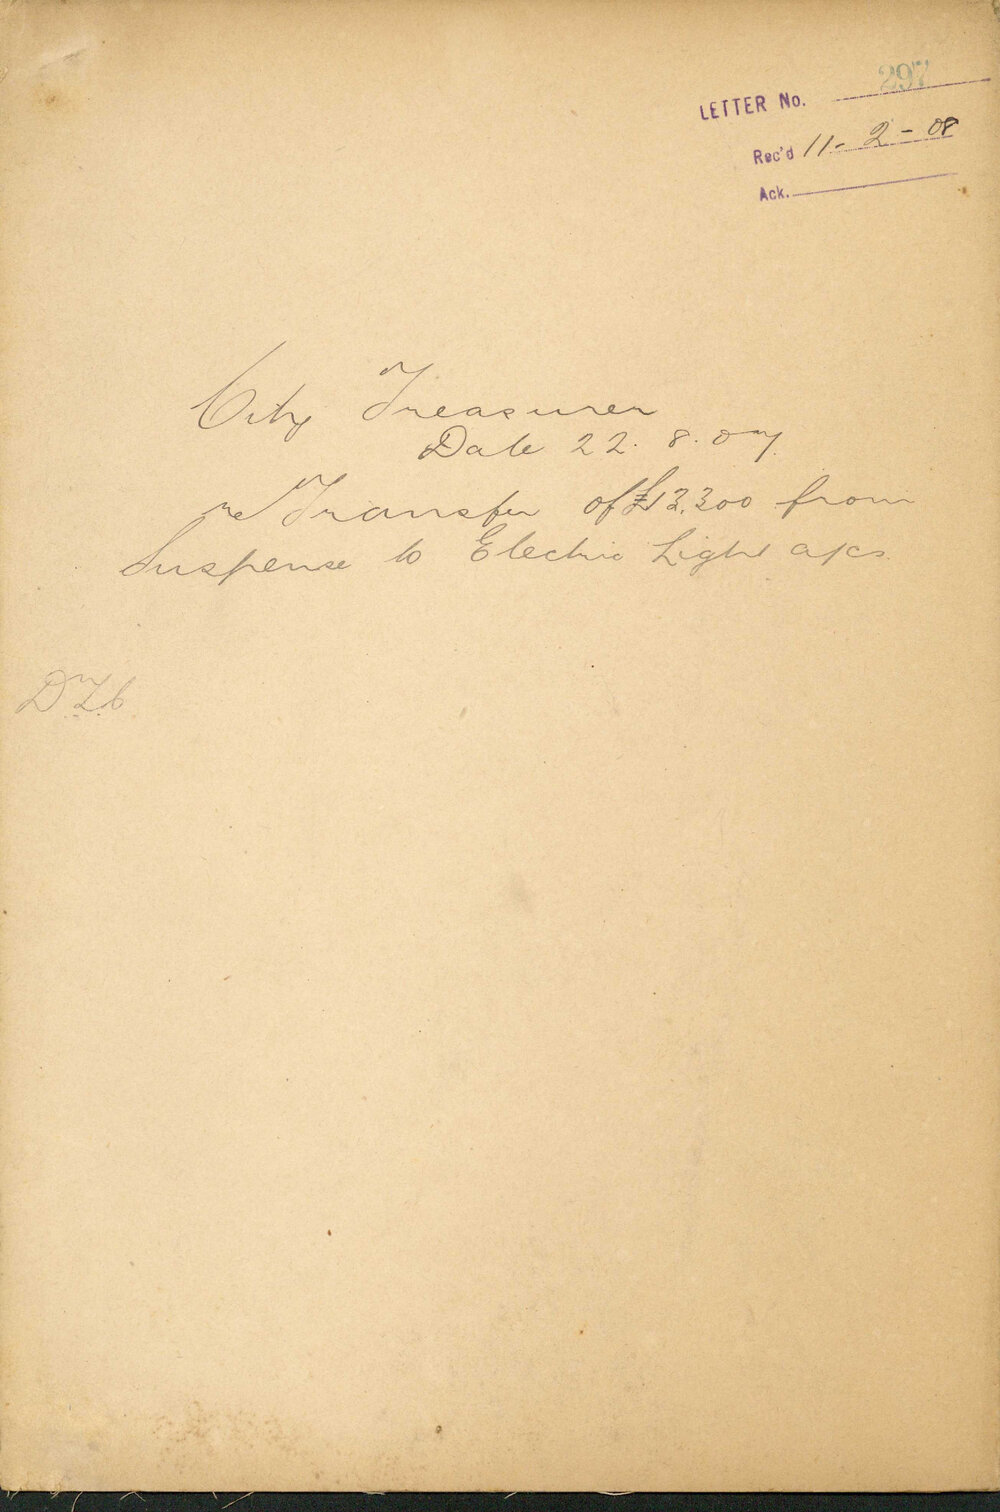 LETTER No. 297
Rec'd 11-2-08
Ack.
City Treasurer
Date 22.8.07
re Transfer of £13,300 from
Suspense to Electric Light a/cs.